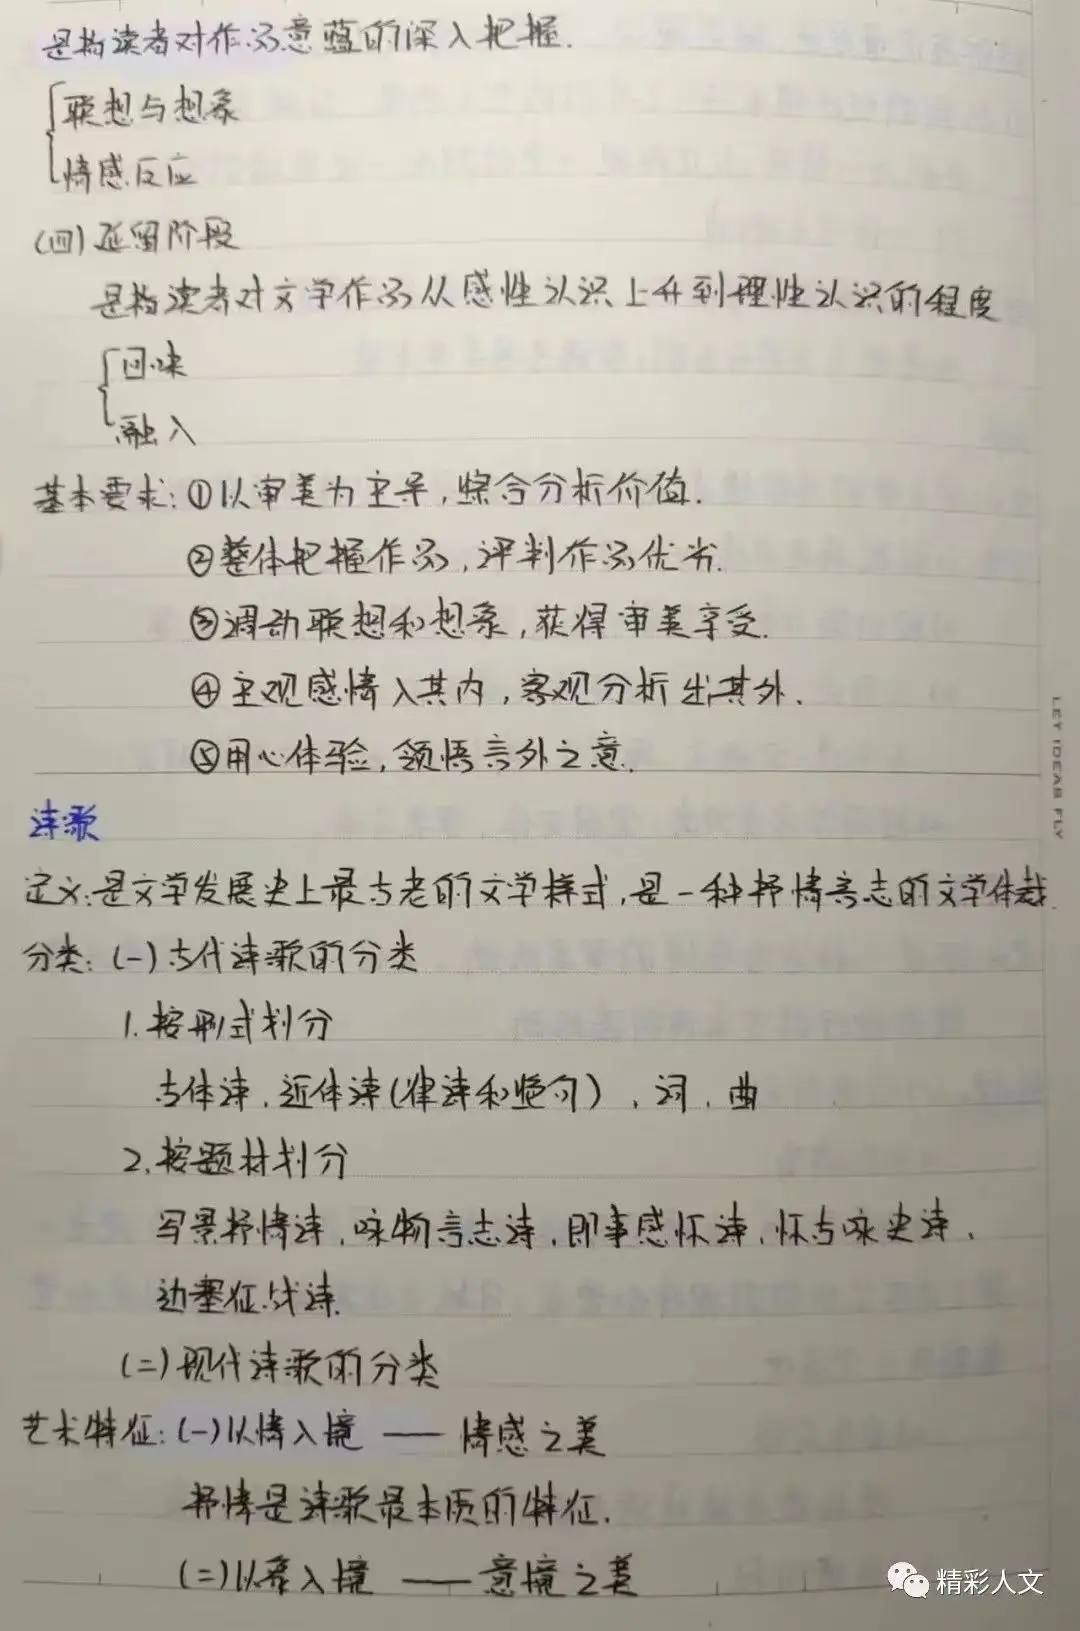 是指读者对作品意蕴的深入把握.
联想与想象
情感反应
(四)延留阶段
是指读者对文学作品从感性认识上升到理性认识的程度
回味
融入
基本要求:①以审美为主导,综合分析价值.
②整体把握作品,评判作品优劣.
③调动联想和想象,获得审美享受.
④主观感情入其内,客观分析出其外.
⑤用心体验,领悟言外之意.
诗歌
定义:是文学发展史上最古老的文学样式,是一种抒情言志的文学体裁.
分类:(一)古代诗歌的分类
1.按形式划分
古体诗,近体诗(律诗和绝句),词,曲
2.按题材划分
写景抒情诗,咏物言志诗,即事感怀诗,怀古咏史诗,
边塞征战诗.
(二)现代诗歌的分类
艺术特征:(一)以情入境——情感之美
抒情是诗歌最本质的特征.
(二)以象入境——意境之美
LET IDEAS FLY
精彩人文